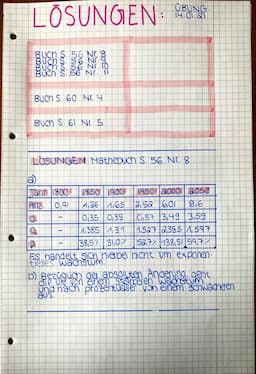 LÖSUNGEN:
ÜBUNG
14.01.21
Buch S. 56 Nr. 8
Buch S. 56 Nr. 9
Buch S. 56 Nr. 10
Buch S. 56 Nr. 11
Buch S. 60 Nr. 4
Buch S. 61 Nr. 5
LÖSUNGEN Mathebuch S. 56 Nr. 8
a)
Jahr 1800 1850 1900 1950 2000 2050
Anz 0,91 1,26 1,65 2,52 6,01 9,6
- 0,35 0,39 0,87 3,49 3,59
- 1,385 1,31 1,527 2,385 1,597
- 38,5% 31,0% 52,7% 138,5% 59,7%
Es handelt sich hierbei nicht um exponen-
tielles Wachstum.
b) Bezüglich der absoluten Änderung geht
die UN von einem stärkeren Wachstum
und nach prozentualer von einem schwächeren
aus.